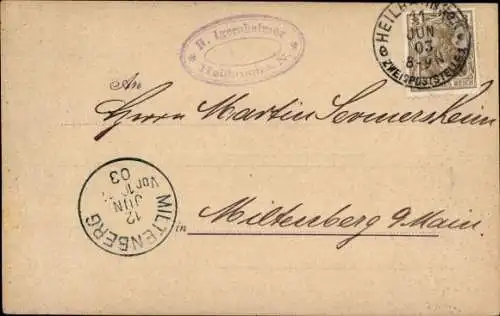 HEILBRONN
11
JUN
03
8-9N
ZWEIGPOSTSTELLE
Heilbronn a. N.
An
Herrn Martin Sermersheim
MILTENBERG
12
JUN
03
Vor 10
in
Miltenberg a Main.